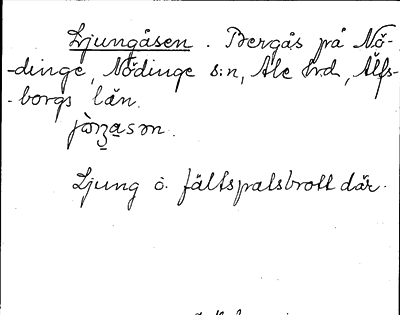 Ljungåsen. Bergås på Nö-
-dinge, Nödinge s:n, Ale hrd, Älfs-
-borgs län.
Ljung o. fältspatsbrott där.